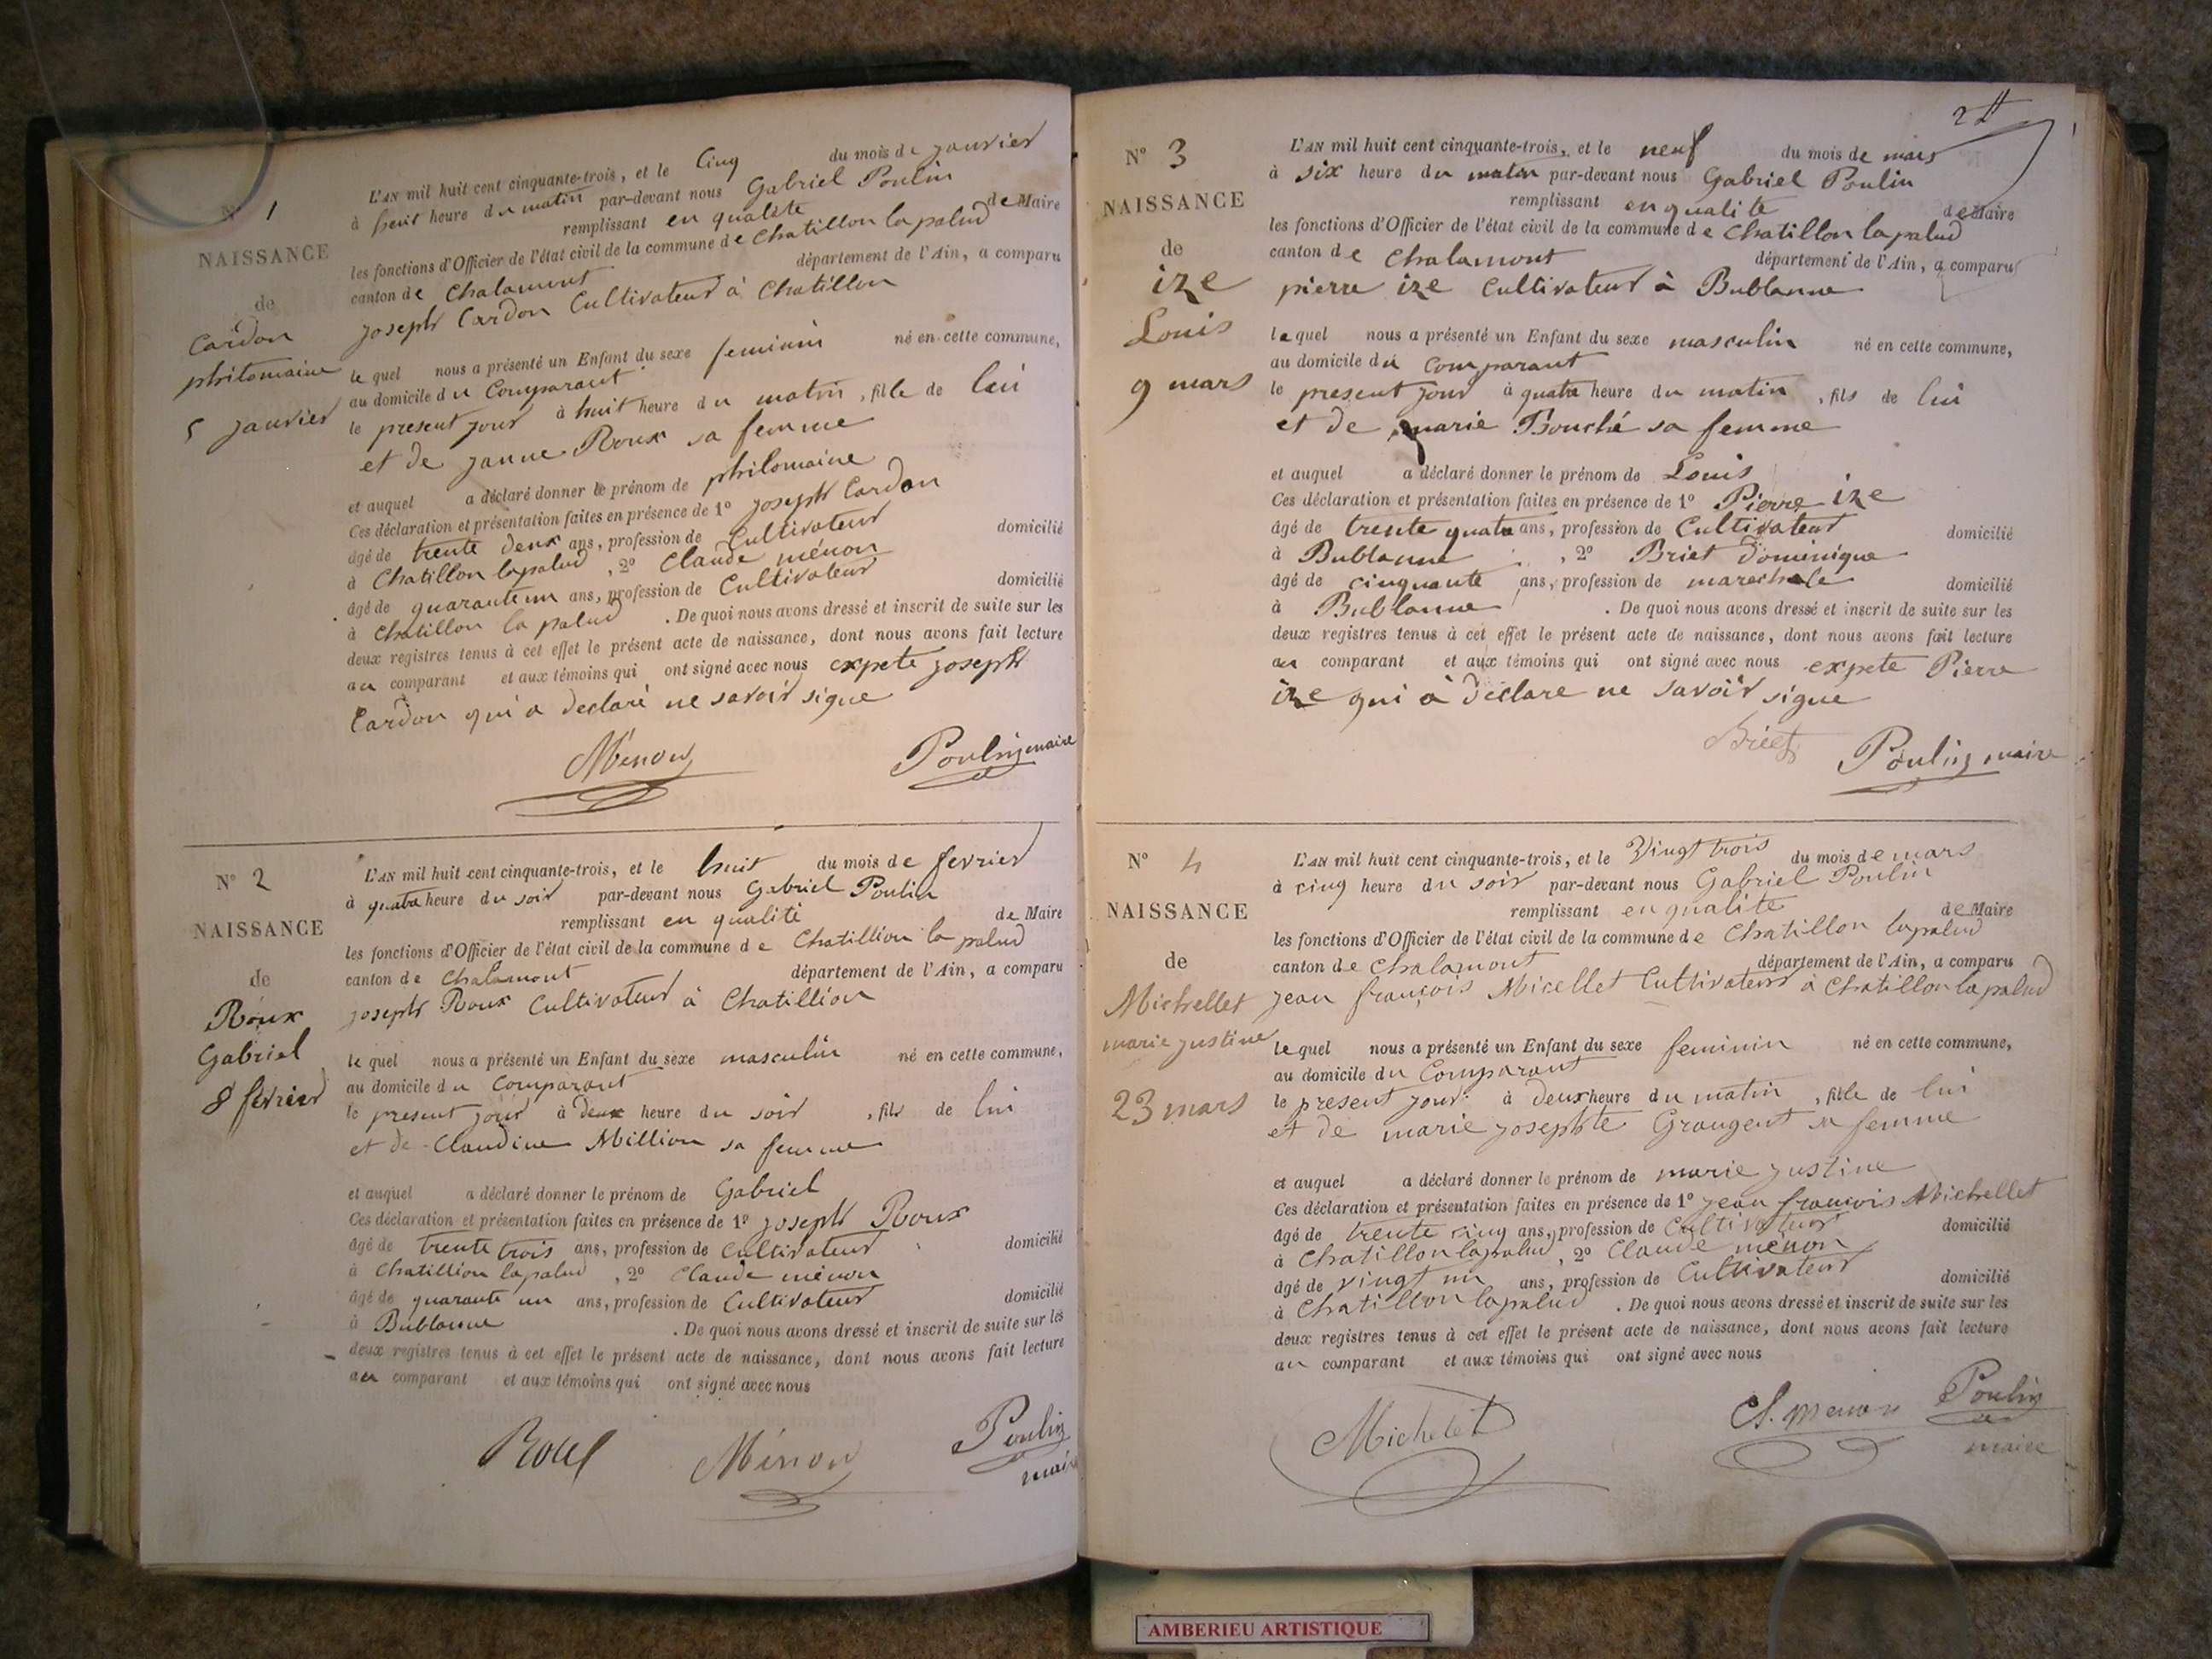 N° 1
NAISSANCE
de
Cardon
philomaine
5 janvier
L'AN mil huit cent cinquante-trois, et le Cinq du mois de janvier
à huit heure du matin par-devant nous Gabriel Poulin
remplissant en qualité de Maire
les fonctions d'Officier de l'état civil de la commune de Chatillon la palud
canton de Chalamont département de l'Ain, a comparu
joseph Cardon Cultivateur à Chatillon
le quel nous a présenté un Enfant du sexe feminin né en cette commune,
au domicile du Comparant
le present jour à huit heure du matin, fille de lui
et de janne Roux sa femme
et auquel a déclaré donner le prénom de philomaine
Ces déclaration et présentation faites en présence de 1° joseph Cardon
âgé de trente deux ans, profession de Cultivateur domicilié
à Chatillon lapalud, 2° Claude ménon
âgé de quarante un ans, profession de Cultivateur domicilié
à Chatillon la palud. De quoi nous avons dressé et inscrit de suite sur les
deux registres tenus à cet effet le présent acte de naissance, dont nous avons fait lecture
au comparant et aux témoins qui ont signé avec nous expete joseph
Cardon qui a declaré ne savoir signe
Ménon Poulin maire
N° 2
NAISSANCE
de
Roux
Gabriel
8 fevrier
L'AN mil huit cent cinquante-trois, et le huit du mois de fevrier
à quatre heure du soir par-devant nous Gabriel Poulin
remplissant en qualité de Maire
les fonctions d'Officier de l'état civil de la commune de Chatillion la palud
canton de Chalamont département de l'Ain, a comparu
joseph Roux Cultivateur à Chatillion
le quel nous a présenté un Enfant du sexe masculin né en cette commune,
au domicile du Comparant
le present jour à deux heure du soir, fils de lui
et de Claudine Million sa femme
et auquel a déclaré donner le prénom de Gabriel
Ces déclaration et présentation faites en présence de 1° joseph Roux
âgé de trente trois ans, profession de Cultivateur domicilié
à Chatillion lapalud, 2° Claude ménon
âgé de quarante un ans, profession de Cultivateur domicilié
à Bublanne. De quoi nous avons dressé et inscrit de suite sur les
deux registres tenus à cet effet le présent acte de naissance, dont nous avons fait lecture
au comparant et aux témoins qui ont signé avec nous
Ménon Poulin
maire
N° 3
NAISSANCE
de
ize
Louis
9 mars
L'AN mil huit cent cinquante-trois, et le neuf du mois de mars
à six heure du matin par-devant nous Gabriel Poulin
remplissant en qualité de Maire
les fonctions d'Officier de l'état civil de la commune de Chatillon lapalud
canton de Chalamont département de l'Ain, a comparu
pierre ize Cultivateur à Bublanne
le quel nous a présenté un Enfant du sexe masculin né en cette commune,
au domicile du comparant
le present jour à quatre heure du matin, fils de lui
et de marie Bouché sa femme
et auquel a déclaré donner le prénom de Louis
Ces déclaration et présentation faites en présence de 1° Pierre ize
âgé de trente quatre ans, profession de Cultivateur domicilié
à Bublanne, 2° Briet Dominique
âgé de cinquante ans, profession de marechale domicilié
à Bublanne. De quoi nous avons dressé et inscrit de suite sur les
deux registres tenus à cet effet le présent acte de naissance, dont nous avons fait lecture
au comparant et aux témoins qui ont signé avec nous expete Pierre
ize qui à declare ne savoir signe
Briet Poulin maire
N° 4
NAISSANCE
de
Michellet
marie justine
23 mars
L'AN mil huit cent cinquante-trois, et le Vingt trois du mois de mars
à cinq heure du soir par-devant nous Gabriel Poulin
remplissant en qualité de Maire
les fonctions d'Officier de l'état civil de la commune de Chatillon lapalud
canton de Chalamont département de l'Ain, a comparu
jean françois Micellet Cultivateur à Chatillon la palud
le quel nous a présenté un Enfant du sexe feminin né en cette commune,
au domicile du Comparant
le present jour à deux heure du matin, fille de lui
et de marie josephte Grangent sa femme
et auquel a déclaré donner le prénom de marie justine
Ces déclaration et présentation faites en présence de 1° jean françois Michellet
âgé de trente cinq ans, profession de Cultivateur domicilié
à Chatillon lapalud, 2° Claude ménon
âgé de vingt un ans, profession de Cultivateur domicilié
à Chatillon lapalud. De quoi nous avons dressé et inscrit de suite sur les
deux registres tenus à cet effet le présent acte de naissance, dont nous avons fait lecture
au comparant et aux témoins qui ont signé avec nous
Michelet Cl. menon Poulin
maire
AMBERIEU ARTISTIQUE